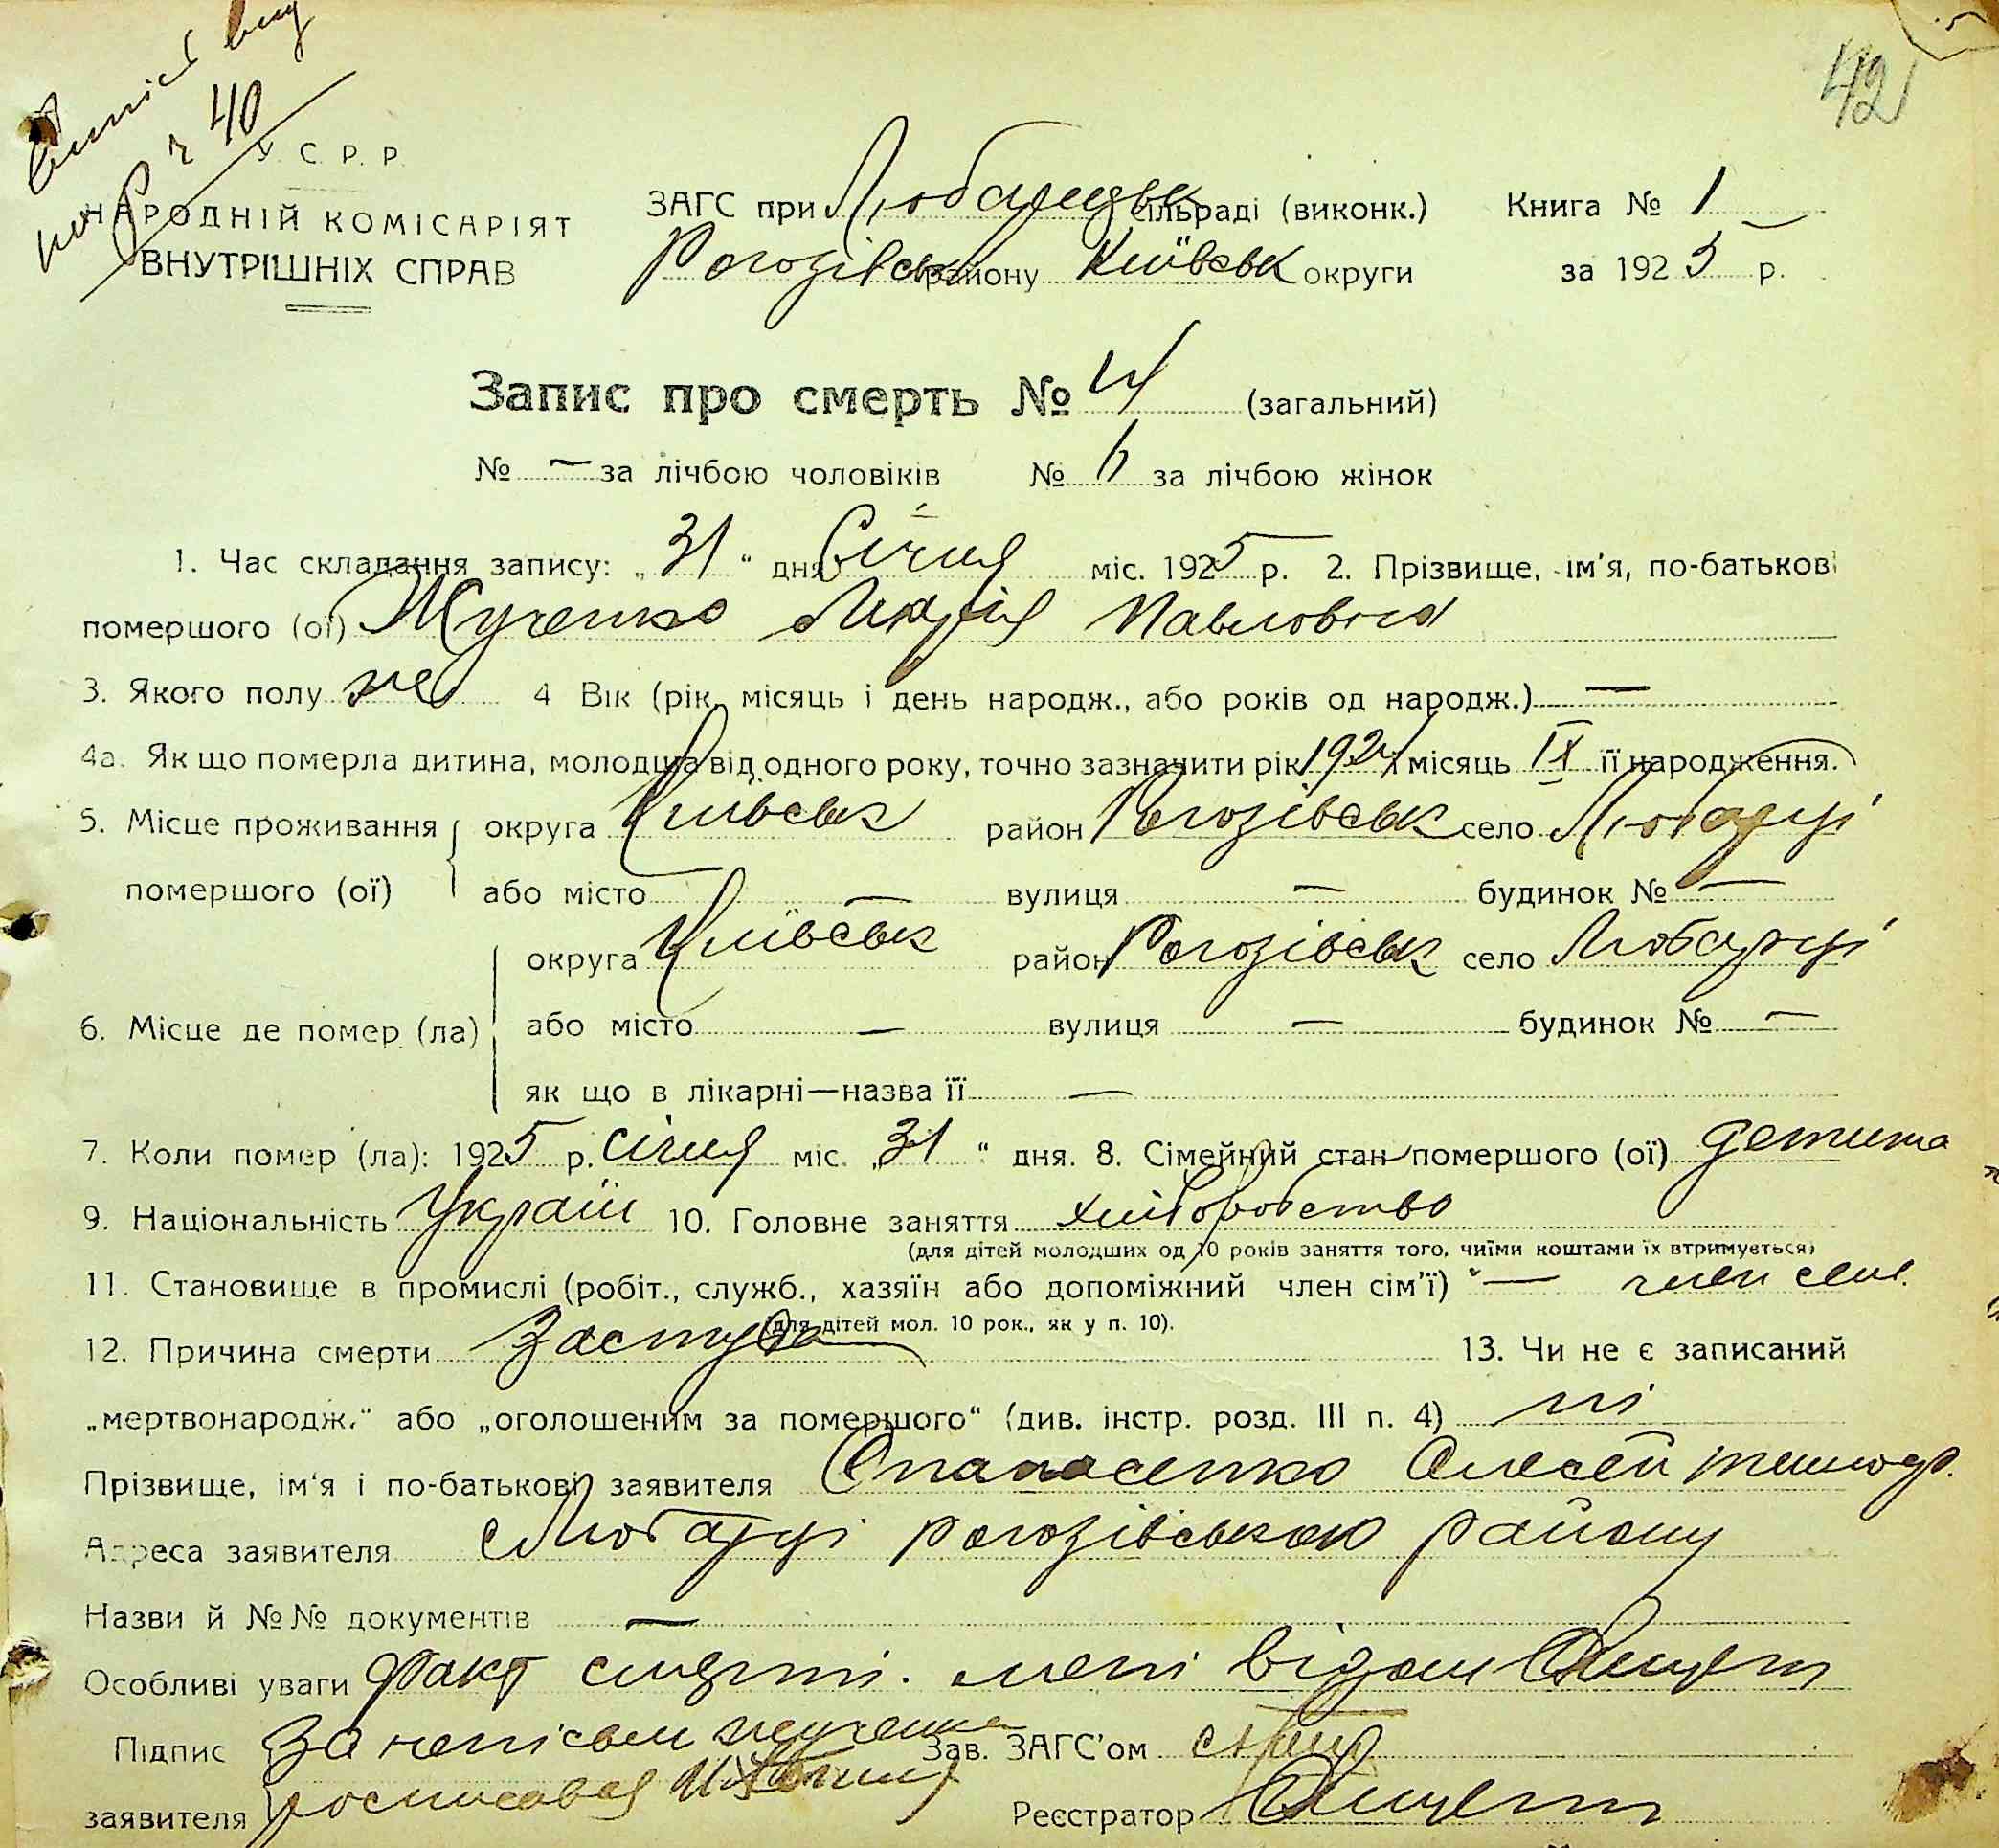 42
№ 40
У. С. Р. Р.
НАРОДНІЙ КОМІСАРІЯТ
ВНУТРІШНІХ СПРАВ
ЗАГС при Любарецьк сільраді (виконк.) Книга № 1
Рогозівськ району Київськ округи за 1925 р.
Запис про смерть № (загальний)
№ — за лічбою чоловіків № 6 за лічбою жінок
1. Час складання запису: „31“ дня Січня міс. 1925 р. 2. Прізвище, ім'я, по-батькові
помершого (ої) Жученко Марія Павловна
3. Якого полу же 4 Вік (рік, місяць і день народж., або років од народж.) —
4а. Як що померла дитина, молодша від одного року, точно зазначити рік 1924 місяць IX її народження.
5. Місце проживання округа Київськ район Рогозівськ село Любарці
помершого (ої) або місто — вулиця — будинок № —
округа Київськ район Рогозівськ село Любарці
6. Місце де помер (ла) або місто — вулиця — будинок № —
як що в лікарні—назва її —
7. Коли помер (ла): 1925 р. січня міс. „31“ дня. 8. Сімейний стан помершого (ої) детина
9. Національність Україн 10. Головне заняття хліборобство
(для дітей молодших од 10 років заняття того, чиїми коштами їх втримується)
11. Становище в промислі (робіт., служб., хазяїн або допоміжний член сім'ї) — член сем.
(для дітей мол. 10 рок., як у п. 10).
12. Причина смерти Застуда 13. Чи не є записаний
„мертвонародж.“ або „оголошеним за помершого“ (див. інстр. розд. III п. 4) ні
Прізвище, ім'я і по-батькові заявителя Опанасенко Олексей
Адреса заявителя с Любарці Рогозівського району
Назви й №№ документів —
Особливі уваги Факт смерті. мені відом
Підпис За
Зав. ЗАГС'ом
заявителя росписався
Реєстратор